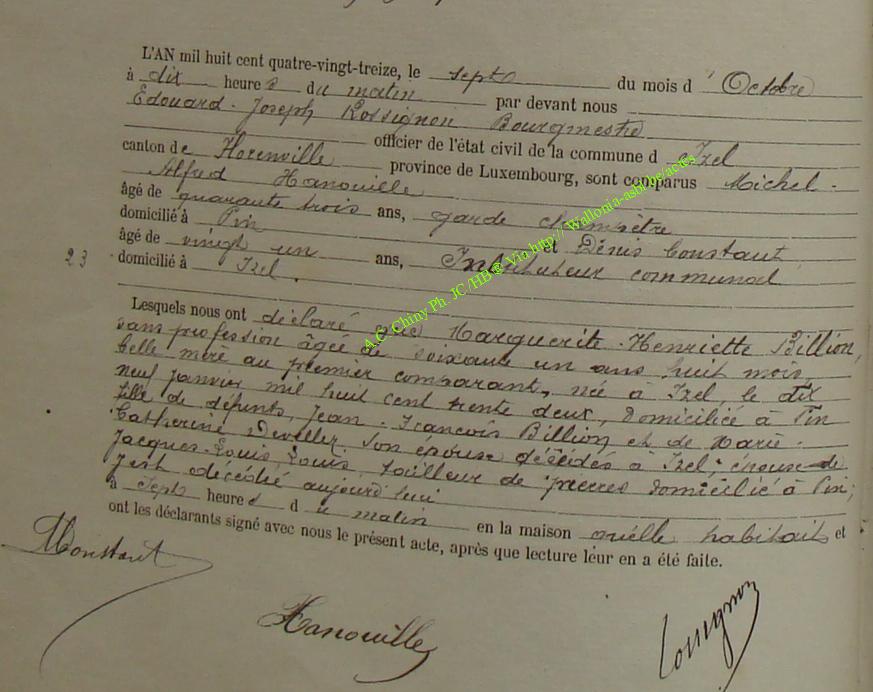 L'AN mil huit cent quatre-vingt-treize, le sept du mois d'Octobre
à dix heures du matin par devant nous
Edouard-Joseph Rossignon Bourgmestre
officier de l'état civil de la commune d'Izel
canton de Florenville province de Luxembourg, sont comparus Michel-
Alfred Hanouille
âgé de quarante trois ans, garde champêtre
domicilié à Pin et Dénis Constant
23 âgé de vingt un ans, Instituteur communal
domicilié à Izel.
Lesquels nous ont déclaré que Marguerite-Henriette Billion,
sans profession âgée de soixante un ans huit mois,
belle mère au premier comparant, née à Izel, le dix
neuf janvier mil huit cent trente deux, domiciliée à Pin
fille de défunts, Jean-François Billion et de Marie-
Catherine son épouse décédés à Izel; épouse de
Jacques-Louis Louis, tailleur de pierres domicilié à Pin;
y est décédée aujourd'hui
à sept heures du matin en la maison qu'elle habitait et
ont les déclarants signé avec nous le présent acte, après que lecture leur en a été faite.
DConstant
Hanouille
Rossignon
A.C. Chiny Ph. JC/HB® Via http://Wallonia-asbl.be/actes